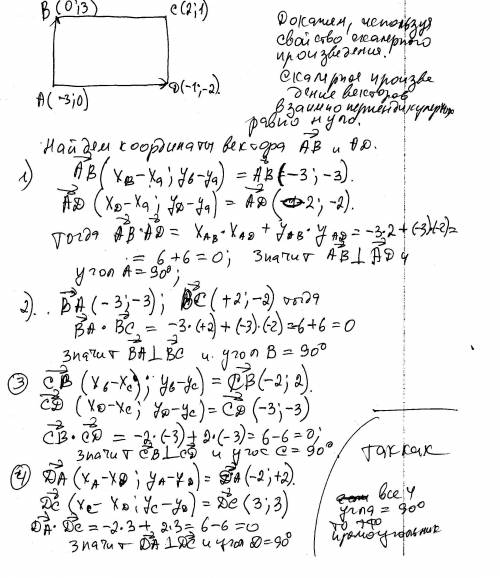 B (0;3) C(2;1)
A(-3;0) D(-1;-2)
Докажем, используя
свойство скалярного
произведения.
Скалярное произве
дение векторов
взаимно перпендикулярных
равно нулю.
Найдем координаты вектора AB и AD.
1) AB (xB-xa; yB-ya) = AB (-3; -3).
AD (xD-xa; yD-ya) = AD (2; -2).
тогда AB·AD = xAB·xAD + yAB·yAD = -3·2+(-3)·(-2)=
= 6+6=0; значит AB⊥AD и
угол A=90°;
2). BA(-3;-3); BC(+2;-2) тогда
BA·BC = -3·(+2)+(-3)·(-2)=6+6=0
значит BA⊥BC и угол B=90°
3) CB (xB-xC); yB-yC) = CB(-2; 2).
CD (xD-xC; yD-yC) = CD(-3;-3)
CB·CD = -2·(-3)+2·(-3)=6-6=0;
значит CB⊥CD и угос C=90°.
4) DA (xA-xD; yA-yD) = DA(-2;+2).
DC (xC-xD; yC-yD) = DC (3;3)
DA·DC=-2·3+2·3=6-6=0
значит DA⊥DC и угол D=90°
так как
все 4
угла = 90°
то это
прямоугольник